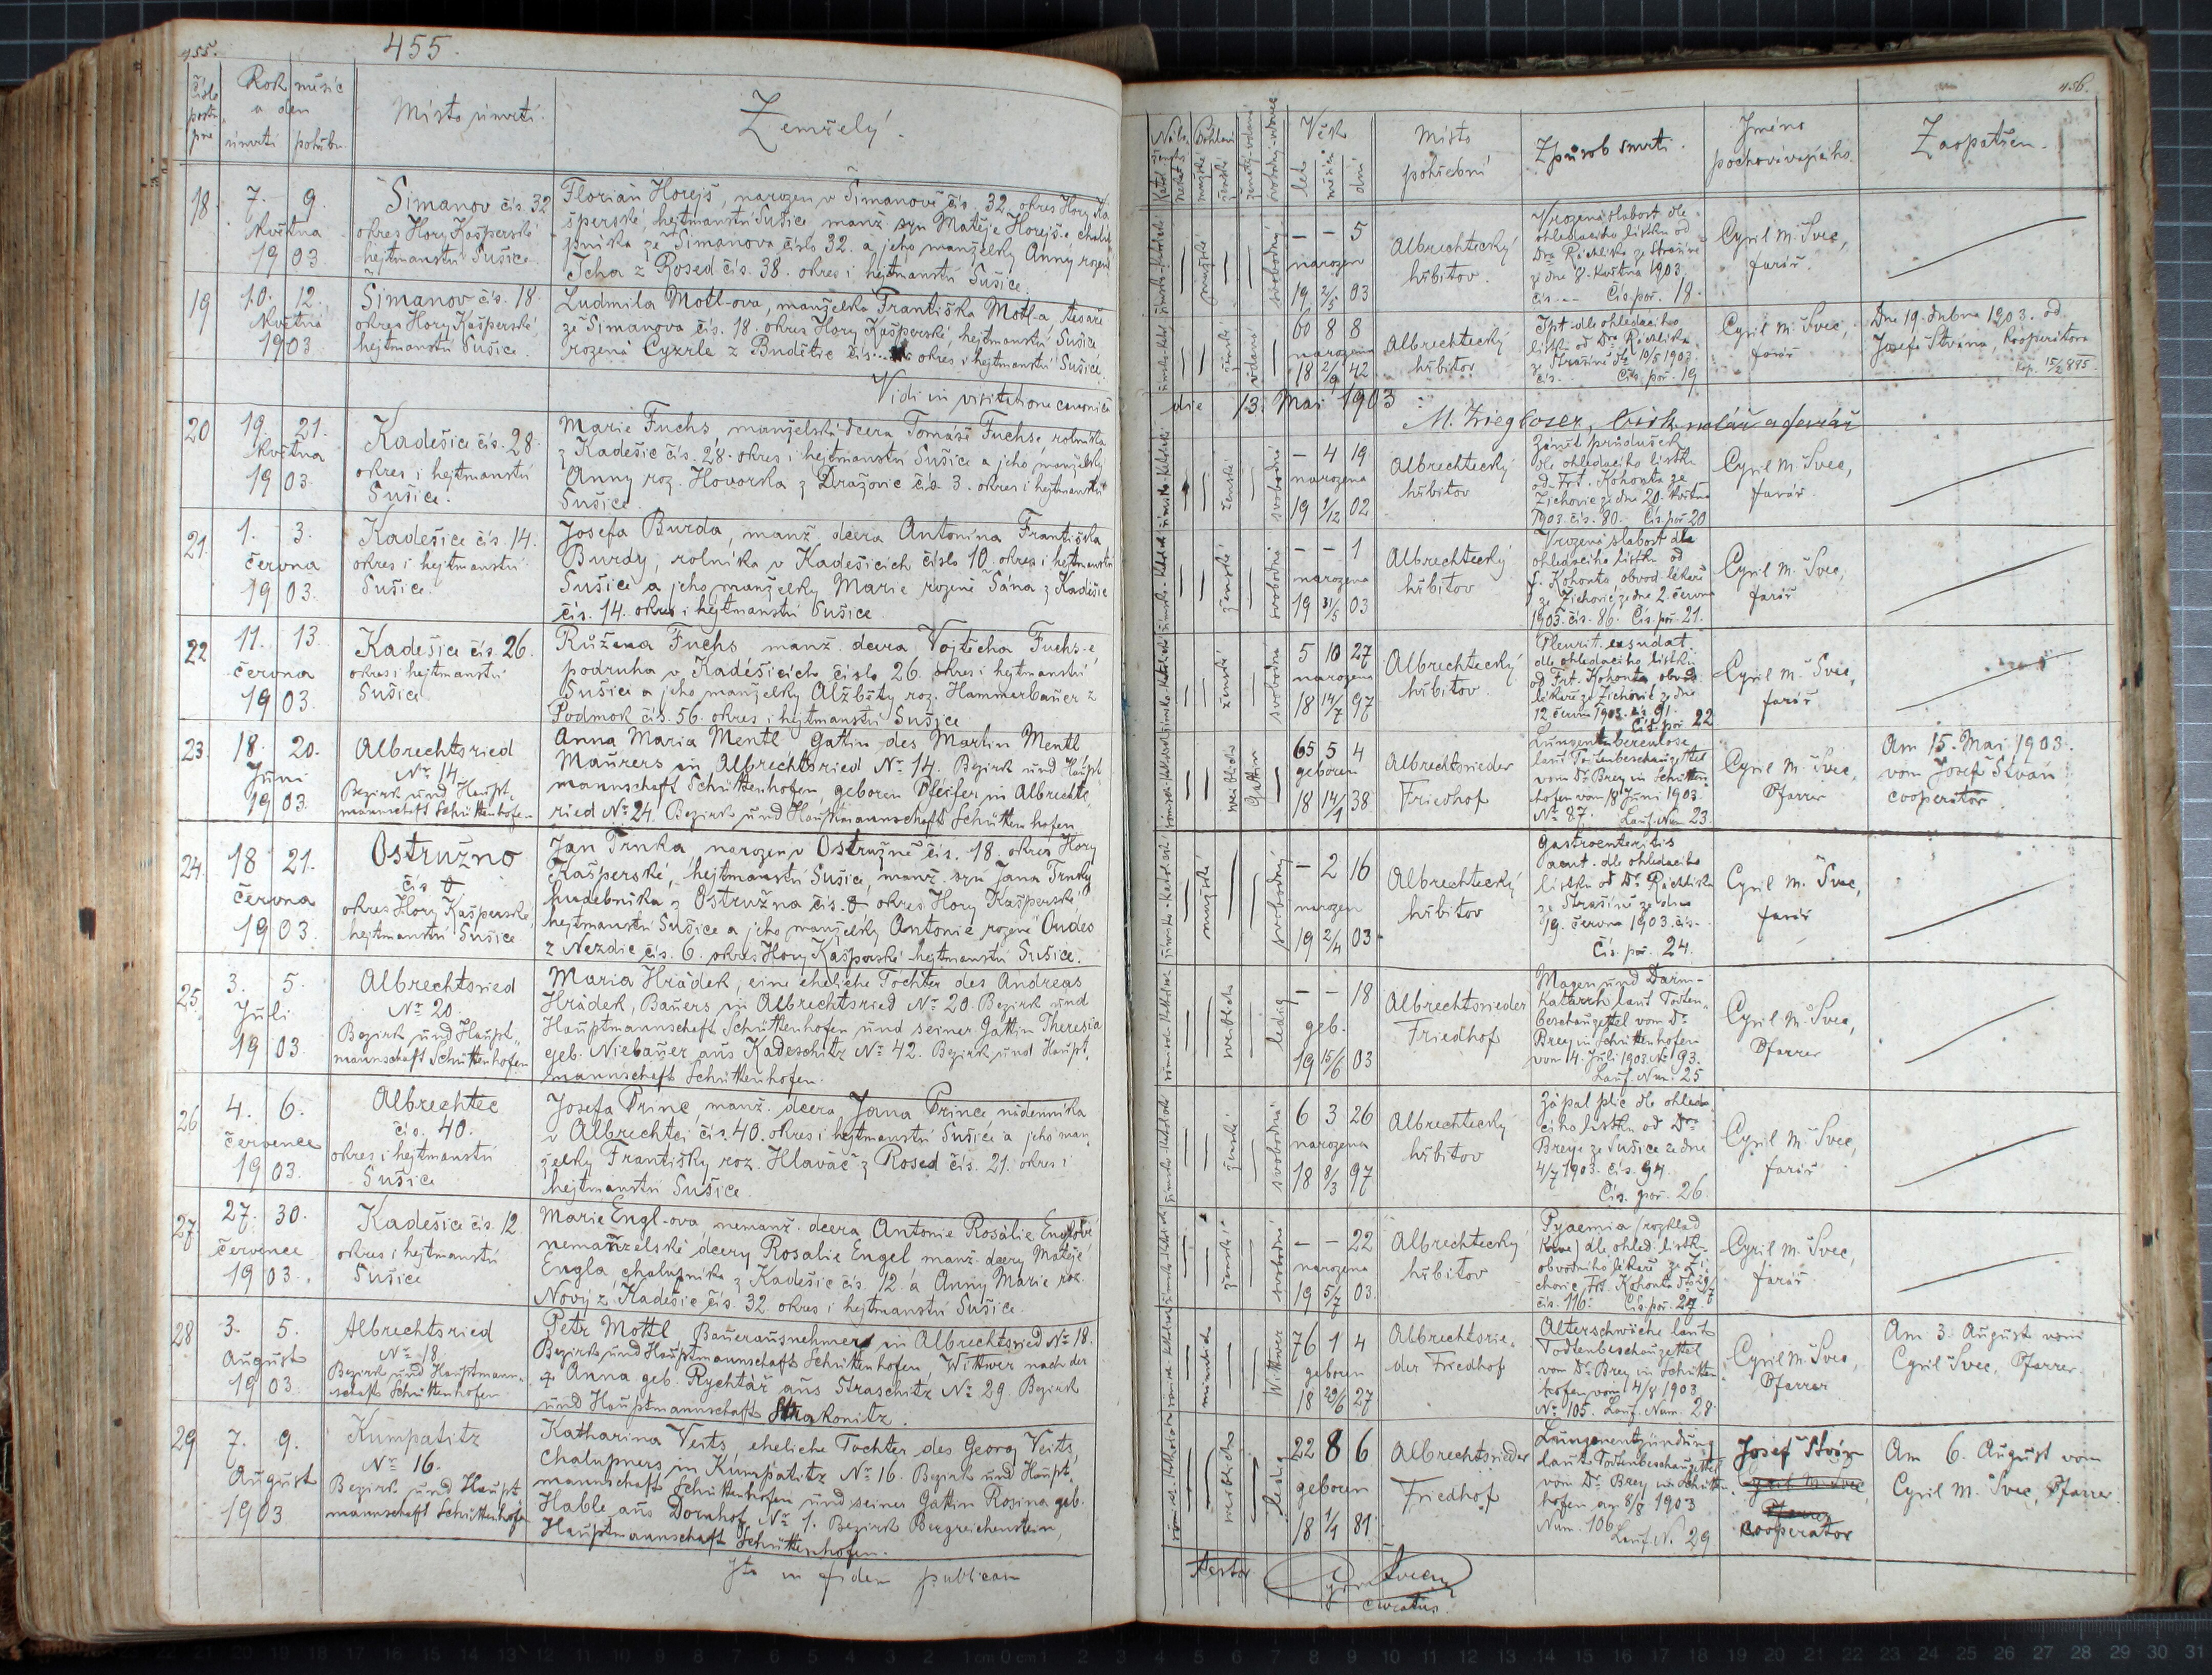 455.
455.
Číslo postu pné
Rok měsíc
a den
úmrtí pohřbu
Místo úmrtí.
Zemřelý.
18. 7. 9.
Května
1903
Šimanov čís. 32
okres Hory Kašperské
hejtmanství Sušice.
Florian Horejš, narozen v Šimanově čís. 32. okres Hory Ka
šperské, hejtmanství Sušice, manž. syn Matěje Horejš-e chalu
pníka ze Šimanova číslo 32. a jeho manželky Anny rozené
Tcha z Rosed čís. 38. okres i hejtmanství Sušice.
19 10. 12.
Května
1903
Šimanov čís. 18.
okres Hory Kašperské,
hejtmanství Sušice.
Ludmila Motl-ova, manželka Františka Motl-a, tesaře
ze Šimanova čís. 18. okres Hory Kašperské, hejtmanství Sušice
rozená Cyzrle z Budětic čís. okres i hejtmanství Sušice.
Vidi in visitatione canonica
20 19. 21.
Května
1903.
Kadešice čís. 28.
okres i hejtmanství
Sušice.
Marie Fuchs, manželská dcera Tomáše Fuchse, rolníka
z Kadešic čís. 28. okres i hejtmanství Sušice a jeho manželky
Anny roz. Hovorka z Dražovic čís. 3. okres i hejtmanství
Sušice.
21. 1. 3.
června
1903.
Kadešice čís. 14.
okres i hejtmanství
Sušice.
Josefa Burda, manž. dcera Antonína Františka
Burdy, rolníka v Kadešicích číslo 10. okres i hejtmanství
Sušice a jeho manželky Marie rozené Šána z Kadešic
čís. 14. okres i hejtmanství Sušice.
22 11. 13.
června
1903.
Kadešice čís. 26.
okres i hejtmanství
Sušice.
Růžena Fuchs manž. dcera Vojtěcha Fuchs-e
podruha v Kadešicích číslo 26. okres i hejtmanství
Sušice a jeho manželky Alžběty roz. Hammerbauer z
Podmok čís. 56. okres i hejtmanství Sušice
23. 18. 20.
Juni
1903.
Albrechtsried
No 14.
Bezirk und Haupt-
mannschaft Schüttenhofen
Anna Maria Mentl Gattin des Martin Mentl
Maurers in Albrechtsried No 14. Bezirk und Haupt
mannschaft Schüttenhofen, geboren Pfeifer in Albrechts
ried No 24. Bezirk und Hauptmannschaft Schüttenhofen
24. 18 21.
června
1903.
Ostružno
čís
okres Hory Kašperské,
hejtmanství Sušice
Jan Trnka, narozen v Ostružně čís. 18. okres Hory
Kašperské, hejtmanství Sušice, manž. syn Jana Trnky
hudebníka z Ostružna čís. okres Hory Kašperské
hejtmanství Sušice a jeho manželky Antonie rozené Oudes
z Nezdic čís. 6. okres Hory Kašperské hejtmanství Sušice.
25. 3. 5.
Juli
1903
Albrechtsried
No 20.
Bezirk und Haupt-
mannschaft Schüttenhofen
Maria Hrádek, eine eheliche Tochter des Andreas
Hrádek, Bauers in Albrechtsried No 20. Bezirk und
Hauptmannschaft Schüttenhofen und seiner Gattin Theresia
geb. Niebauer aus Kadeschitz No 42. Bezirk und Haupt
mannschaft Schüttenhofen.
26 4. 6.
července
1903.
Albrechtec
čís. 40.
okres i hejtmanství
Sušice
Josefa Princ, manž. dcera Jana Prince nádenníka
v Albrechtci čís. 40. okres i hejtmanství Sušice a jeho man
želky Františky roz. Hlaváč z Rosed čís. 21. okres i
hejtmanství Sušice.
27. 27. 30.
července
1903.
Kadešice čís. 12
okres i hejtmanství
Sušice
Marie Engl-ova nemanž. dcera Antonie Rosálie Englové
nemanželské dcery Rosalie Engel manž. dcery Matěje
Engla, chalupníka z Kadešic čís. 12. a Anny Marie roz.
Nový z Kadešic čís. 32. okres i hejtmanství Sušice.
28 3. 5.
August
1903
Albrechtsried
No 18.
Bezirk und Hauptmann-
schaft Schüttenhofen
Petr Mottl, Bauerausnehmer in Albrechtsried No 18.
Bezirk und Hauptmannschaft Schüttenhofen, Wittwer nach der
† Anna geb. Rychtář aus Straschitz No 29. Bezirk
und Hauptmannschaft Strakonitz.
29 7. 9.
August
1903
Kumpatitz
No 16.
Bezirk und Haupt
mannschaft Schüttenhofen
Katharina Veits, eheliche Tochter des Georg Veits,
Chalupners in Kumpatitz No 16. Bezirk und Haupt
mannschaft Schüttenhofen und seiner Gattin Rosina geb.
Hable aus Dornhof No 1. Bezirk Bergreichenstein,
Hauptmannschaft Schüttenhofen.
Ita in fidem publicam
456.
Věk
let
měsíců
dní
Místo
pohřební
Způsob smrti.
Jméno
pochovávajícího.
Zaopatřen.
římsko-katolické
mužské
svobodný
– – 5
narozen
19 2/5 03
Albrechtecký
hřbitov.
Vrozená slabost dle
ohledacího lístku od
Dra Rächlíka ze Strašína
ze dne 8. května 1903
čís. -- Čís. poř. 18.
Cyril M. Švec,
farář.
ženské
vdaná
60 8 8
narozena
18 2/9 42
Albrechtecký
hřbitov
dle ohledacího
lístku od Dra Rächlíka
ze Strašína 10/5 1903.
čís. Čís. poř. 19
Cyril M. Švec,
farář
Dne 19. dubna 1903. od
Josefa Štvána, kooperátora
kop. 15/2 885.
die 13. Mai 1903:
M. Ziegloser, bisk. notář a farář
ženské
svobodná
– 4 19
narozena
19 1/12 02
Albrechtecký
hřbitov
Zánět průdušek
dle ohledacího lístku
od Frt. Kohouta ze
Žichovic ze dne 20. května
1903. čís. 80. Čís. poř 20
Cyril M. Švec,
farář.
ženské
svobodná
– – 1
narozena
19 31/5 03
Albrechtecký
hřbitov
Vrozená slabost dle
ohledacího lístku od
f. Kohouta obvod. lékaře
ze Žichovic ze dne 2. června
1903. čís. 86. Čís. poř. 21.
Cyril M. Švec,
farář
ženské
svobodná
5 10 27
narozena
18 14/7 97
Albrechtecký
hřbitov.
Pleurit. exsudat.
dle ohledacího lístku
od Frt. Kohouta obvod.
lékaře ze Žichovic ze dne
12 června 1903. čís 91.
Čís. poř. 22
Cyril M. Švec,
farář
weiblich
Gattin
65 5 4
geboren
18 14/1 38
Albrechtsrieder
Friedhof
Lungentuberculose
laut Todtenbeschauzettel
vom Dr Brey in Schütten
hofen vom 18 Juni 1903.
No 87. Lauf. Num 23.
Cyril M. Švec,
Pfarrer
Am 15. Mai 1903.
vom Josef Štván
cooperator
mužské
svobodný
– 2 16
narozen
19 2/4 03
Albrechtecký
hřbitov
Gastroenteritis
acut. dle ohledacího
lístku od Dr Rächlíka
ze Strašína ze dne
19. června 1903. čís.-
Čís. poř. 24.
Cyril M. Švec,
farář
weiblich
ledig
– – 18
geb.
19 15/6 03
Albrechtsrieder
Friedhof
Magen und Darm-
Katarrh laut Todten-
beschauzettel vom Dr
Brey in Schüttenhofen
vom 4. Juli 1903. No 93.
Lauf. Num. 25
Cyril M. Švec,
Pfarrer
ženské
svobodná
6 3 26
narozena
18 8/3 97
Albrechtecký
hřbitov
Zápal plic dle ohleda
cího lístku od Dra
Breye ze Sušice ze dne
4/7 1903. čís. 94.
Čís. poř. 26.
Cyril M. Švec,
farář
ženské
svobodná
– – 22
narozena
19 5/7 03.
Albrechtecký
hřbitov
Pyaemia (rozklad
krve) dle ohled. lístku
obvodního lékaře ze Ži
chovic Frt. Kohouta
čís. 116. Čís. poř. 27.
Cyril M. Švec,
farář
männlich
Wittwer
76 1 4
geboren
18 29/6 27
Albrechtsrie-
der Friedhof
Alterschwäche laut
Todtenbeschauzettel
vom Dr Brey in Schütten
hofen, vom 4/8 1903
No 105. Lauf. Num. 28.
Cyril M. Švec,
Pfarrer
Am 3. August vom
Cyril Švec, Pfarrer.
weiblich
ledig
22 8 6
geboren
18 1/1 81.
Albrechtsrieder
Friedhof
Lungenentzündung
laut Todtenbeschauzettel
vom Dr Brey in Schütten
hofen am 8/8 1903
Num. 106 Lauf. N. 29
Josef Štván
Cyril M. Švec,
Pfarrer
cooperator
Am 6. August vom
Cyril M. Švec, Pfarrer.
testor
curatus.